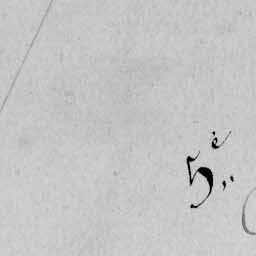 5è„